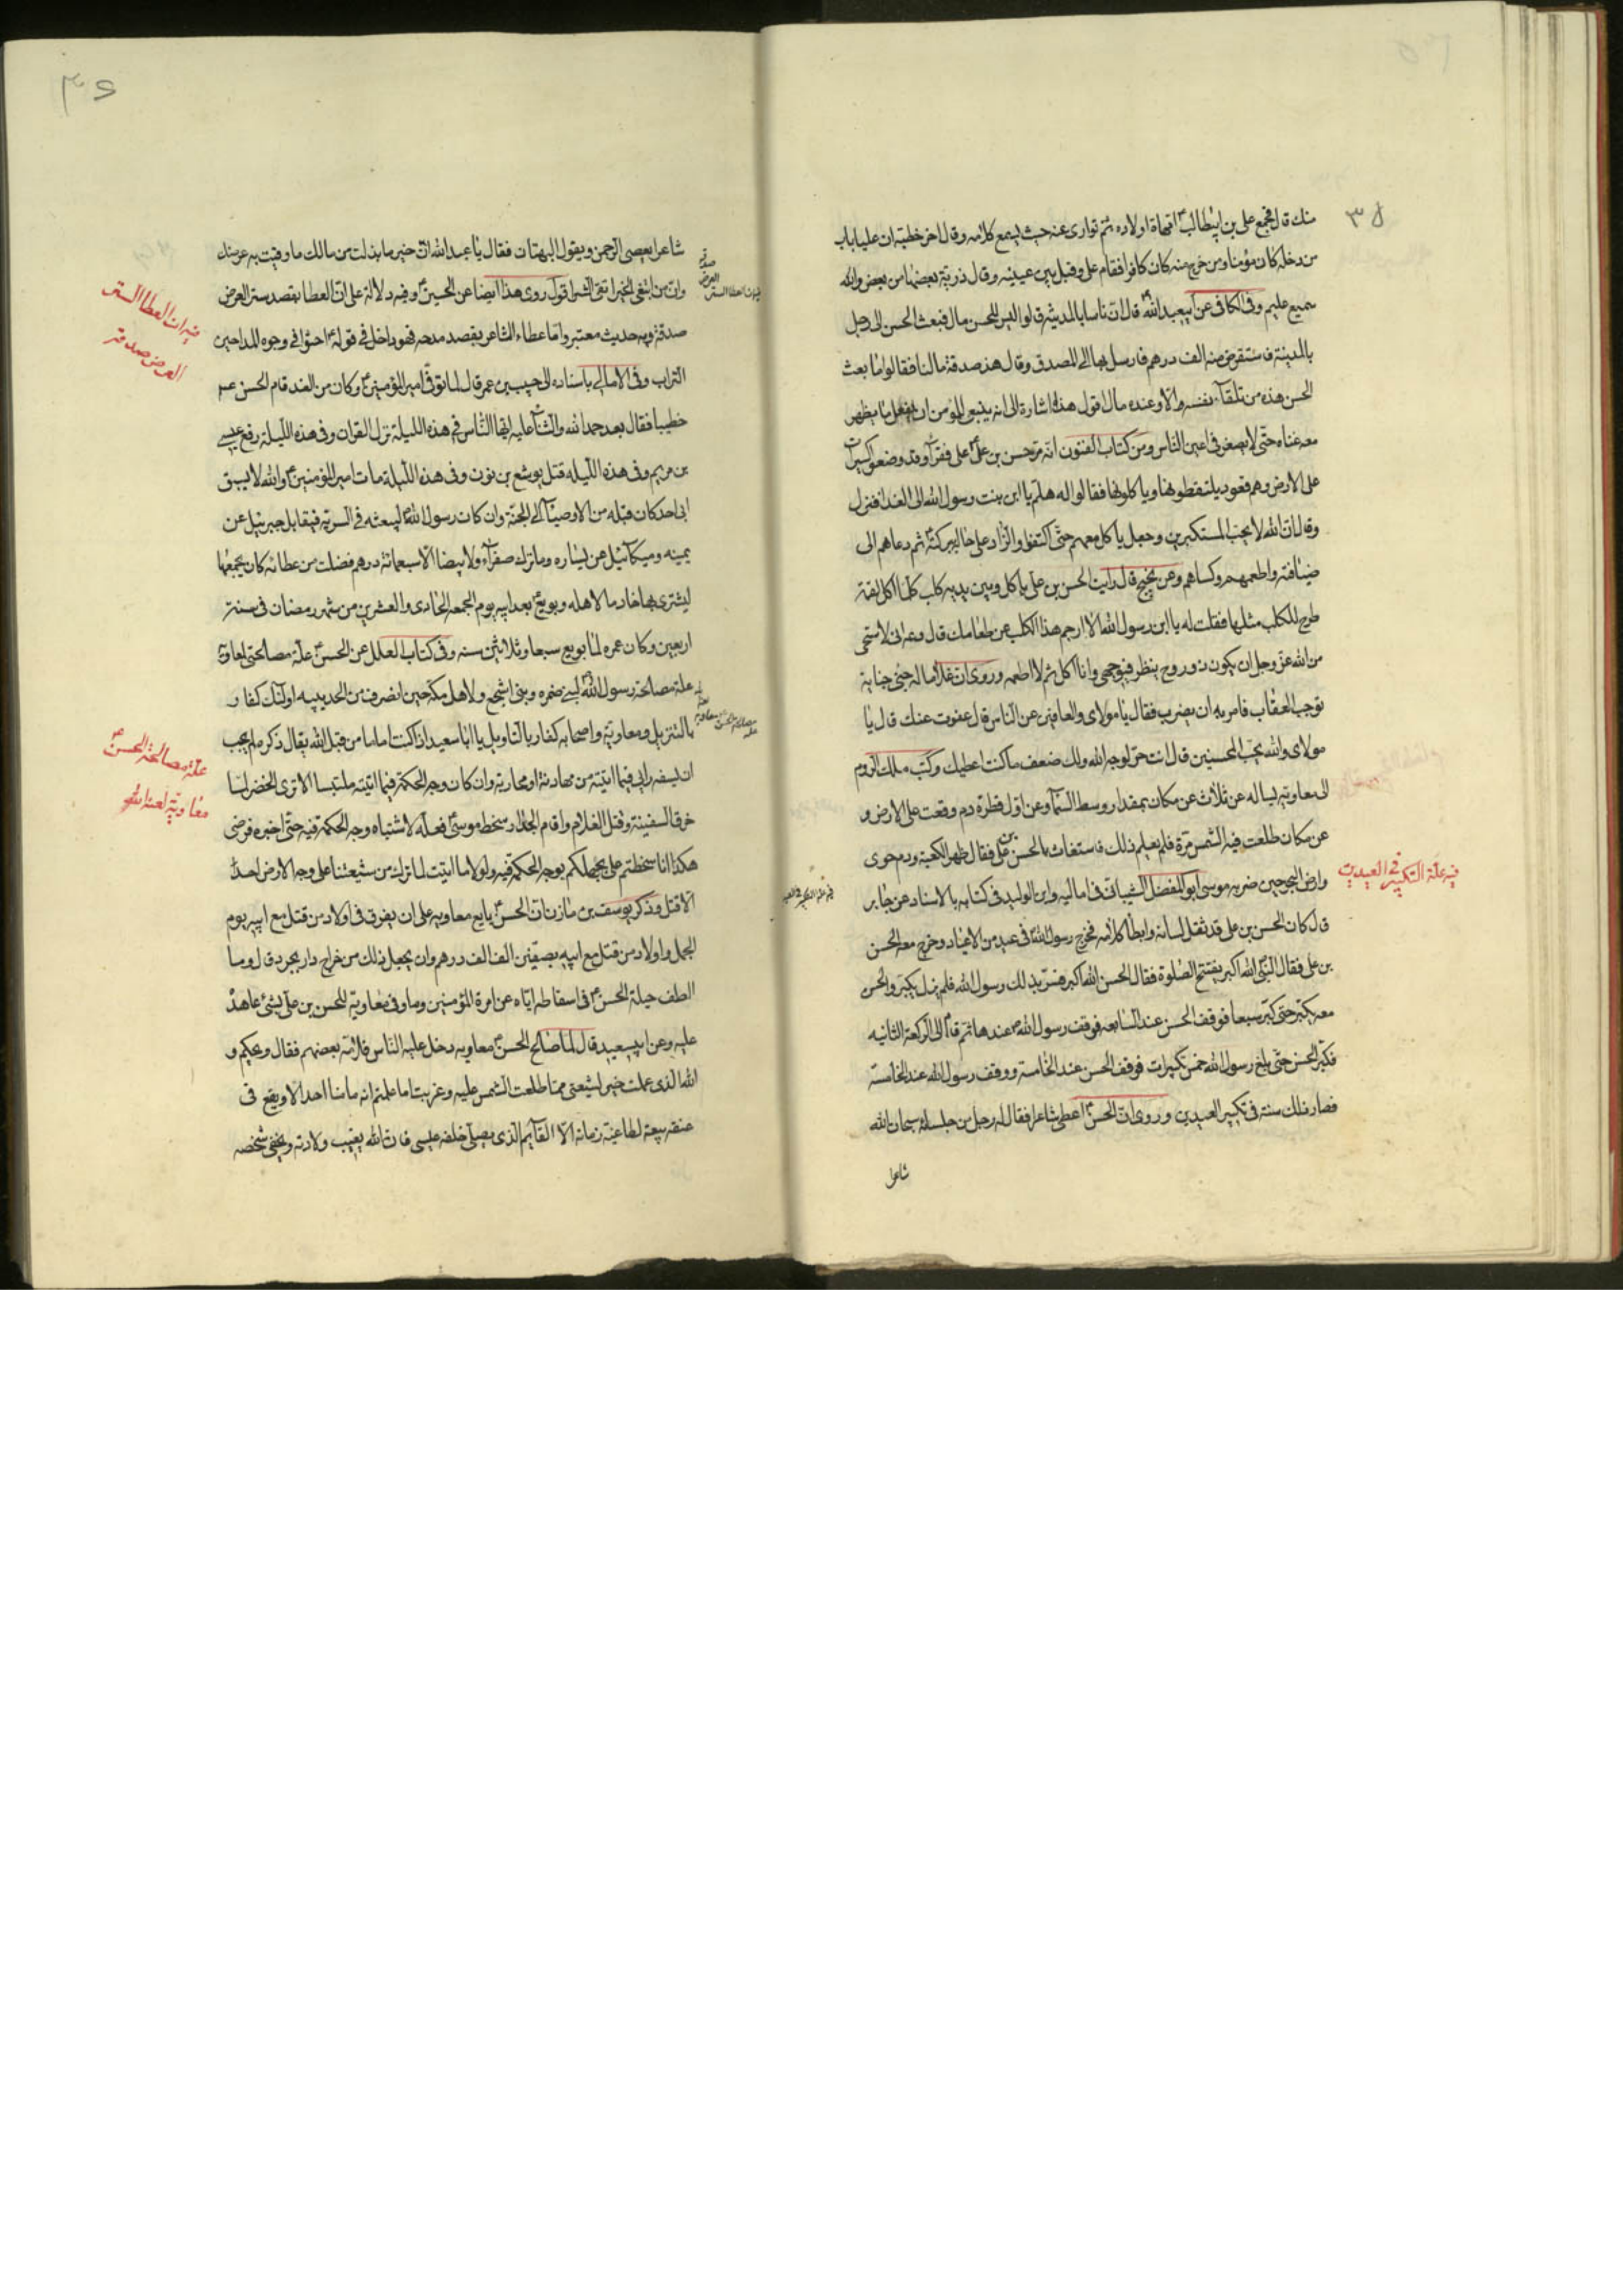 ٣٥
منك قال فجمع علي بن ابيطالب ع اهله و اولاده ثم توارى عنه حيث يسمع كلامه وقال اخر خطبته ان عليا باب
من دخله كان مؤمنا ومن خرج منه كان كافرا فقام علي وقبل بين عينيه وقال ذرية بعضها من بعض والله
سميع عليم وفي الكافي عن ابيعبد الله ع قال ان ناسا بالمدينة قالوا ليس للحسن مال فبعث الحسن الى رجل
بالمدينة فاستقرض منه الف درهم فارسل بها الى المصدق وقال هذه صدقة مالنا فقالوا ما بعث
الحسن هذه من تلقاء نفسه الا وعنده مال اقول هذا اشارة الى انه ينبغي للمؤمن ان يفعل ما يظهر
معه غناه حتى لا يصغر في اعين الناس ومن كتاب الفنون انه مر حسن بن علي ع على فقراء وقد وضعوا كسيرات
على الارض وهم قعود يلتقطونها وياكلونها فقالوا له هلم يا ابن بنت رسول الله الى الغداء فنزل
وقال ان الله لا يحب المستكبرين وجعل ياكل معهم حتى اكتفوا والزاد على حاله ببركته ثم دعاهم الى
ضيافته واطعمهم وكساهم وعن نجيح قال رايت الحسن بن علي ياكل وبين يديه كلب كلما اكل لقمة
طرح للكلب مثلها فقلت له يا ابن رسول الله الا ارجم هذا الكلب عن طعامك قال دعه اني لاستحي
من الله عز وجل ان يكون ذو روح ينظر في وجهي وانا اكل ثم لا اطعمه وروى ان غلاما له جنى جناية
توجب العقاب فامر به ان يضرب فقال يا مولاي والعافين عن الناس قال عفوت عنك قال يا
مولاي والله يحب المحسنين قال انت حر لوجه الله ولك ضعف ما كنت اعطيك وكتب ملك الروم
الى معاوية يساله عن ثلاث عن مكان بمقدار وسط السماء وعن اول قطرة دم وقعت على الارض و
عن مكان طلعت فيه الشمس مرة فلم يعلم ذلك فاستغاث بالحسن بن علي فقال ظهر الكعبة ودم حوى
وارض البحر حين ضربه موسى ابو المفضل الشيباني في اماليه وابن الوليد في كتابه بالاسناد عن جابر
قال كان الحسن بن علي قد ثقل لسانه وابطأ كلامه فخرج رسول الله ص في عيد من الاعياد وخرج معه الحسن
بن علي فقال النبي ص الله اكبر يفتتح الصلوة فقال الحسن الله اكبر فسر بذلك رسول الله فلم يزل يكبر والحسن
معه يكبر حتى كبر سبعا فوقف الحسن عند السابعة فوقف رسول الله ص عندها ثم قام الى الركعة الثانيه
فكبر الحسن حتى بلغ رسول الله خمس تكبيرات فوقف الحسن عند الخامسة ووقف رسول الله عند الخامسة
فصار ذلك سنة في تكبير العيدين وروى ان الحسن ع اعطى شاعرا فقال له رجل من جلسائه سبحان الله
شاعرا
فيه علة التكبير في العيدين
٣٦
شاعرا يعصى الرحمن ويقول البهتان فقال يا عبد الله ان خير ما بذلت من مالك ما وقيت به عرضك
وان من ابتغى الخير اتقى الشر اقول روى هذا ايضا عن الحسين ع وفيه دلالة على ان العطا بقصد ستر العرض
صدقة وبه حديث معتبر واما عطاء الشاعر بقصد مدحه فهو داخل في قوله ع احثوا في وجوه المداحين
التراب وفي الامالي باسناده الى حبيب بن عمر قال لما توفي امير المؤمنين ع وكان من الغد قام الحسن ع
خطيبا فقال بعد حمد الله والثناء عليه ايها الناس في هذه الليلة نزل القران وفي هذه الليلة رفع عيسى
بن مريم وفي هذه الليله قتل يوشع بن نون وفي هذه الليلة مات امير المؤمنين ع والله لا يسبق
ابي احد كان قبله من الاوصياء الى الجنة وان كان رسول الله ص ليبعثه في السرية فيقاتل جبرئيل عن
يمينه وميكائيل عن يساره وما ترك صفراء ولا بيضا الا سبعمائة درهم فضلت من عطائه كان يجمعها
ليشتري بها خادما لاهله وبويع بعد ابيه يوم الجمعه الحادى والعشرين من شهر رمضان في سنة
اربعين وكان عمره لما بويع سبعا وثلاثين سنه وفي كتاب العلل عن الحسن ع علة مصالحتي لمعاوية
علة مصالحة رسول الله ص لبني ضمره وبني اشجع ولاهل مكة حين انصرف من الحديبيه اولئك كفار
بالتنزيل ومعاوية واصحابه كفار بالتاويل يا ابا سعيد اذا كنت اماما من قبل الله تعالى ذكره لم يجب
ان يسفه رايي فيما اتيته من مهادنة او محاربة وان كان وجه الحكمة فيما اتيته ملتبسا الا ترى الخضر لما
خرق السفينة وقتل الغلام واقام الجدار سخط موسى ع فعله لاشتباه وجه الحكمة فيه حتى اخبره فرضى
هكذا انا سخطتم علي بجهلكم بوجه الحكمة فيه ولولا ما اتيت لما ترك من شيعتنا على وجه الارض احد
الا قتل وذكر يوسف بن مازن ان الحسن ع بايع معاويه على ان يفرق في اولاد من قتل مع ابيه يوم
الجمل واولاد من قتل مع ابيه بصفين الف الف درهم وان يجعل ذلك من خراج دار بجرد قال وما
الطف حيلة الحسن ع في اسقاطه اياه عن امرة المؤمنين وما وفى معاوية للحسن بن علي بشئ عاهد
عليه وعن ابيسعيد قال لما صالح الحسن ع معاويه دخل عليه الناس فلامه بعضهم فقال ويحكم و
الله الذي عملت خير لشيعتي مما طلعت الشمس عليه وغربت اما علمتم انه ما منا احد الا ويقع في
عنقه بيعة لطاغية زمانه الا القائم الذي يصلي خلفه عيسى فان الله يغيب ولادته ويخفي شخصه
فيه ان العطا لستر
العرض صدقة
علة مصالحة الحسن ع
معاوية لعنه الله